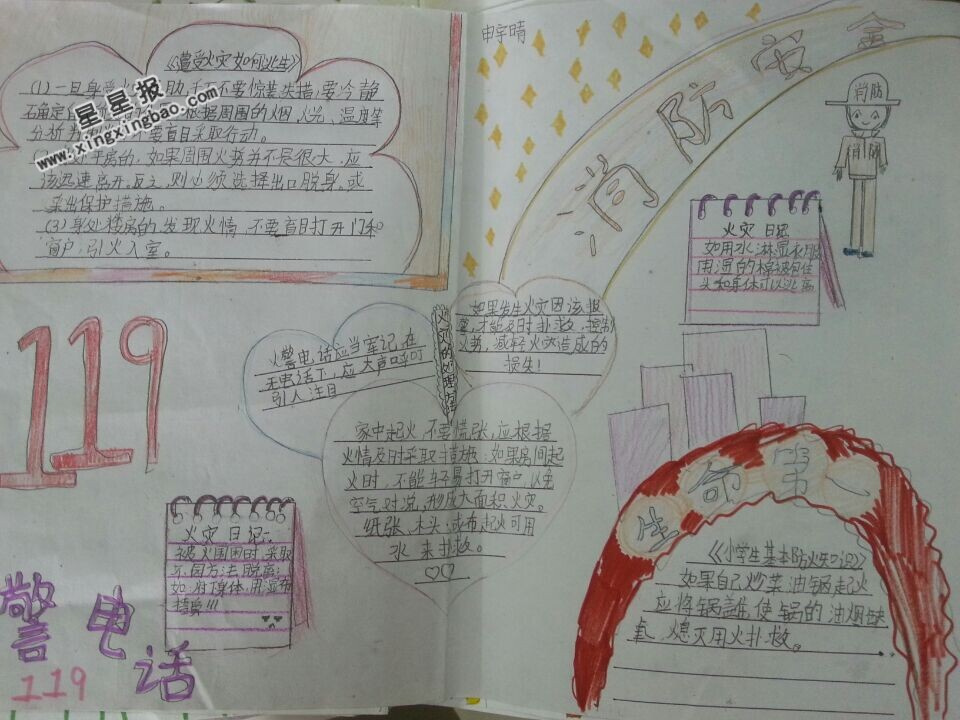 《遭受火灾如何逃生》
(1)一旦身受火 助 不要惊荒失措,要冷静
确定 根据周围的烟、火光、温度等
分析 不要盲目采取行动。
开房的,如果周围火势并不是很大,应
该迅速离开。反之,则必须选择出口脱身,或
采出保护措施。
(3)身处楼房的,发现火情,不要盲目打开门和
窗户,引火入室。
星星报
www.xingxingbao.com
119
火警电话应当牢记,在
无电话下,应大声呼叮
引人注目
火灾的处理方法
如果发生火灾因该报
警,才能及时扑救,控制
火势,减轻火灾造成的
损失!
家中起火,不要慌张,应根据
火情及时采取措施:如果房间起
火时,不能轻易打开窗户,以免
空气对流,形成大面积火灾。
纸张、木头:或布起火可用
水来扑救。
火灾日记:
被火围困时,采取
不同方法脱离;
如:将身体用湿布
捂鼻!!!
警电话
119
申宇晴
消防安全
消防
消防
火灾日记
如用水淋湿衣服
用湿的棉被包住
头和身体可以逃离
生命第一
《小学生基本防火知识》
如果自己炒菜油锅起火
应将锅盖使锅的油烟缺
氧,熄灭用火扑救。